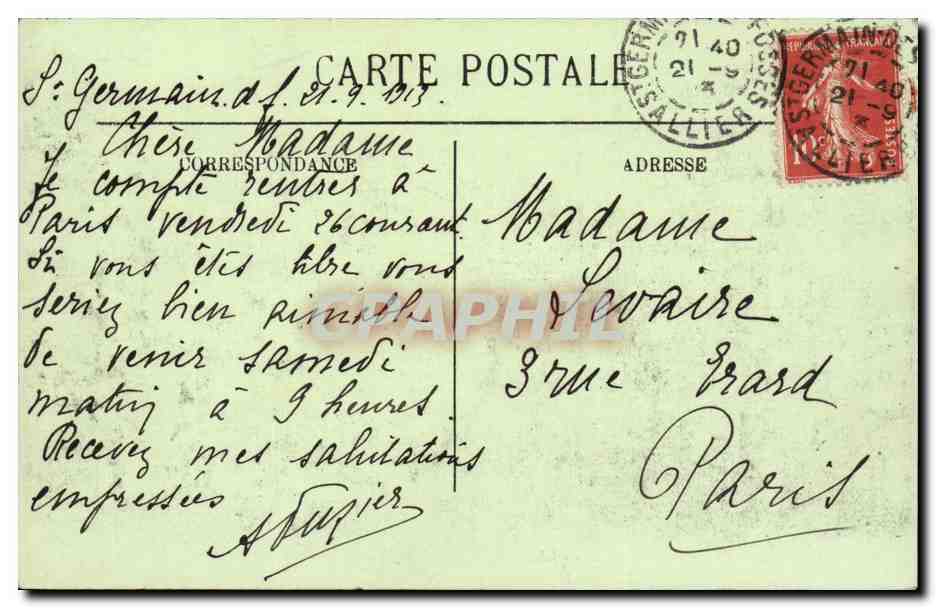 CARTE POSTALE
St Germain d f. 21.9.1913
CORRESPONDANCE
Chère Madame
Je compte rentrer à
Paris vendredi 26 courant.
Si vous êtes libre vous
seriez bien aimable
de venir samedi
matin à 9 heures.
Recevez mes salutations
empressées
ADRESSE
Madame
Levaire
3 rue Erard
Paris
ST GERMAIN-DES-FOSSES
21 40
21 -9
ALLIER
ST GERMAIN-DES
21 40
21 -9
ALLIER
POSTES
CPAPHIL